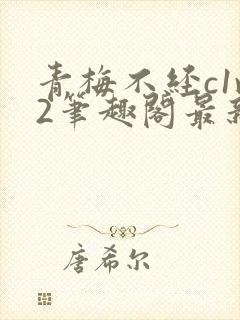 青梅不经c1v
2筆趣阁最新
唐希尔